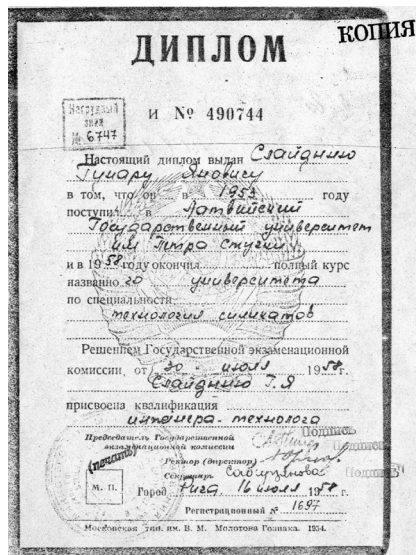 КОПИЯ
ДИПЛОМ
И № 490744
Нагрудный
знак
№ 6747
Настоящий диплом выдан Слайдиню
Гунару Яновису
в том, что он в 1953 году
поступил в Латвийский
Государственный университет
им Петра Стучки
и в 1958 году окончил полный курс
названного университета
по специальности
технология силикатов
Решением Государственной экзаменационной
комиссии от 30 июля 1958 г.
Слайдиню Г.Я
присвоена квалификация
инженера-технолога
Председатель Государственной
экзаменационной комиссии
Подпись
Ректор (директор)
Подпись
Секретарь
Подпись
(печать)
М. П.
Город Рига, 16 июля 1958 г.
Регистрационный № 1697
Московская тип. им. В. М. Молотова Гознака. 1954.